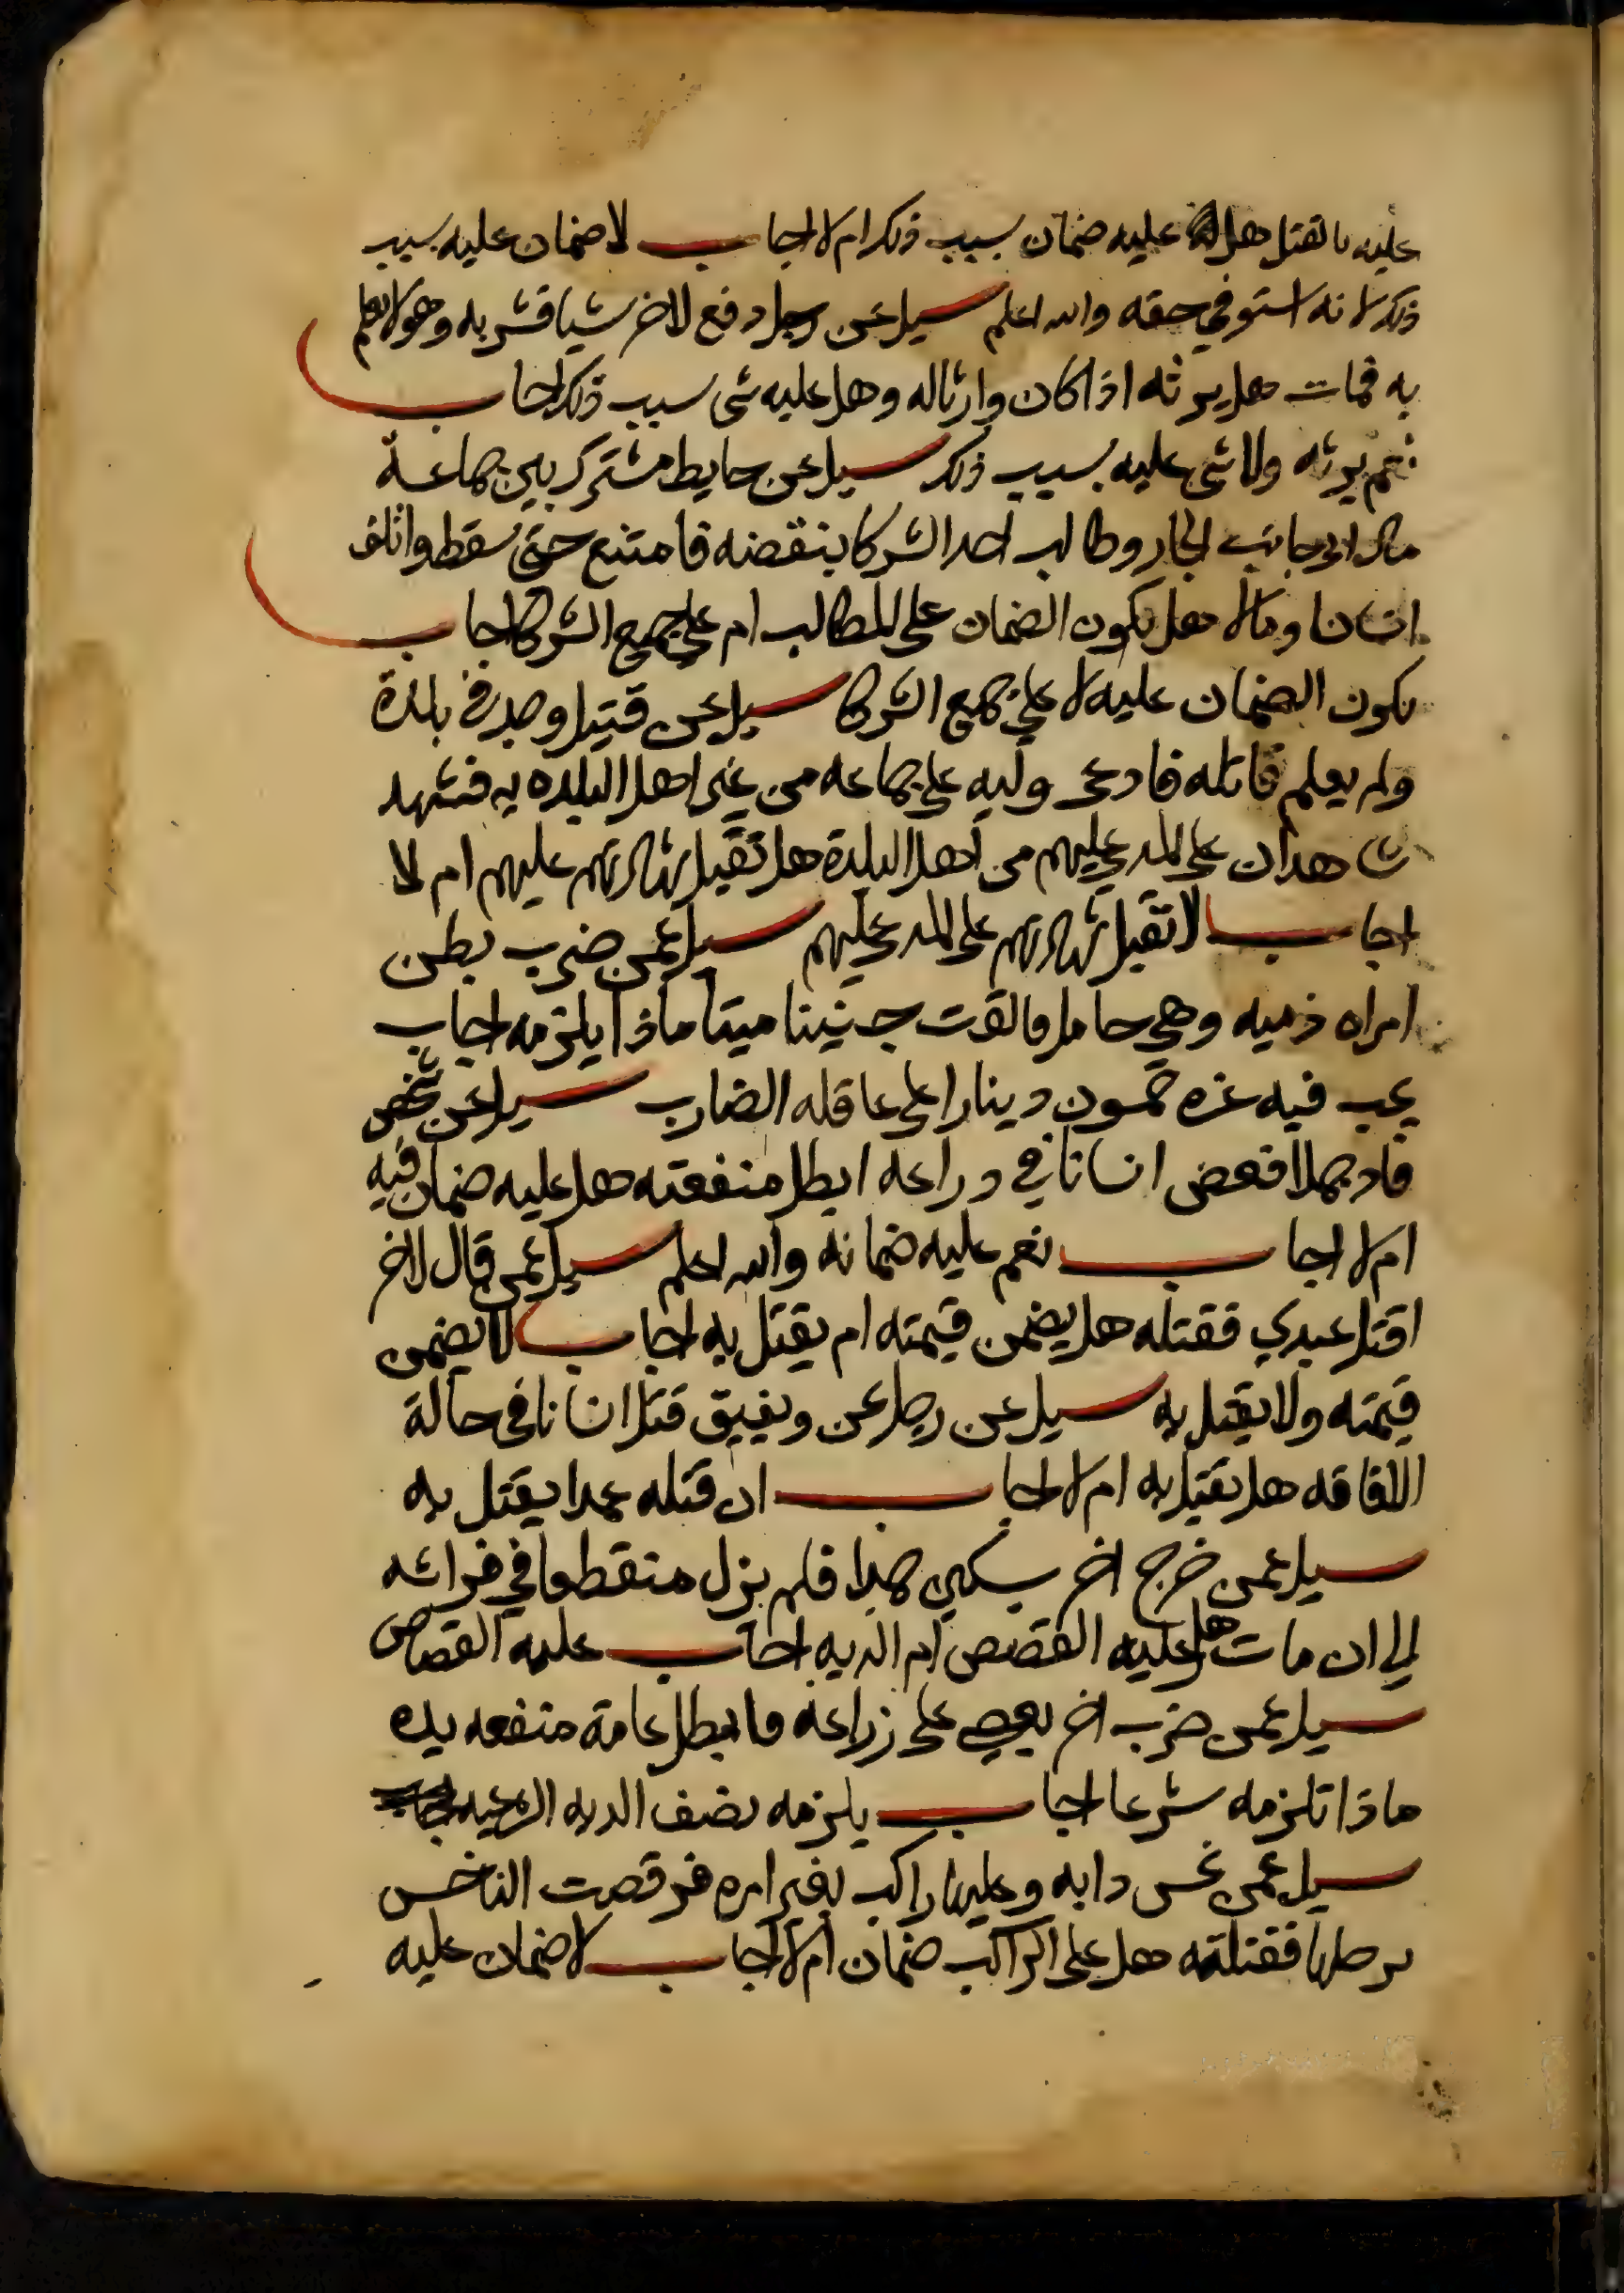 عليه بالقتل هل عليه ضمان بسبب ذلك ام لا اجاب لا ضمان عليه بسبب
ذلك لانه استوفي حقه والله اعلم سيل عن رجل دفع لاخر شيا فشربه وهو لا يعلم
به فمات هل يرثه اذا كان وارثا له وهل عليه شي بسبب ذلك اجاب
نعم يرثه ولا شي عليه بسبب ذلك سيل عن حايط مشترك بين جماعة
مال الي جانب الجار وطالب احد الشركا بنقضه فامتنع حتى سقط واتلف
انسانا ومالا هل يكون الضمان على المطالب ام على جميع الشركا اجاب
يكون الضمان عليه لا على جميع الشركا سيل عن قتيل وجد في بلدة
ولم يعلم قاتله فادعى وليه على جماعه من غير اهل البلده به فشهد
شاهدان على المدعي عليهم من اهل البلدة هل تقبل شهادتهم عليهم ام لا
اجاب لا تقبل شهادتهم على المدعي عليهم سيل عمن ضرب بطن
امراه ذميه وهي حامل فالقت جنينا ميتا ماذا يلزمه اجاب
يجب فيه غره خمسون دينارا على عاقله الضارب سيل عن شخص
قاد جملا فعض انسانا في دراعه ابطل منفعته هل عليه ضمان فيه
ام لا اجاب نعم عليه ضمانه والله اعلم سيل عمن قال لاخر
اقتل عبدي فقتله هل يضمن قيمته ام يقتل به اجاب لا يضمن
قيمته ولا يقتل به سيل عن رجل عن ويفيق قتل انسانا في حالة
الافاقه هل يقتل به ام لا اجاب ان قتله عمدا يقتل به
سيل عمن خرج اخر بسكين عمدا فلم يزل منقطعا في فراشه
الي ان مات هل عليه القصص ام الديه اجاب عليه القصاص
سيل عمن ضرب اخر بعصي على زراعه فابطل عامة منفعه يده
ماذا تلزمه شرعا اجاب يلزمه نصف الديه الشرعيه
سيل عمن نخس دابه وعليها راكب بغير امره فرقصت الناخس
برجلها فقتلته هل على الراكب ضمان ام لا اجاب لا ضمان عليه